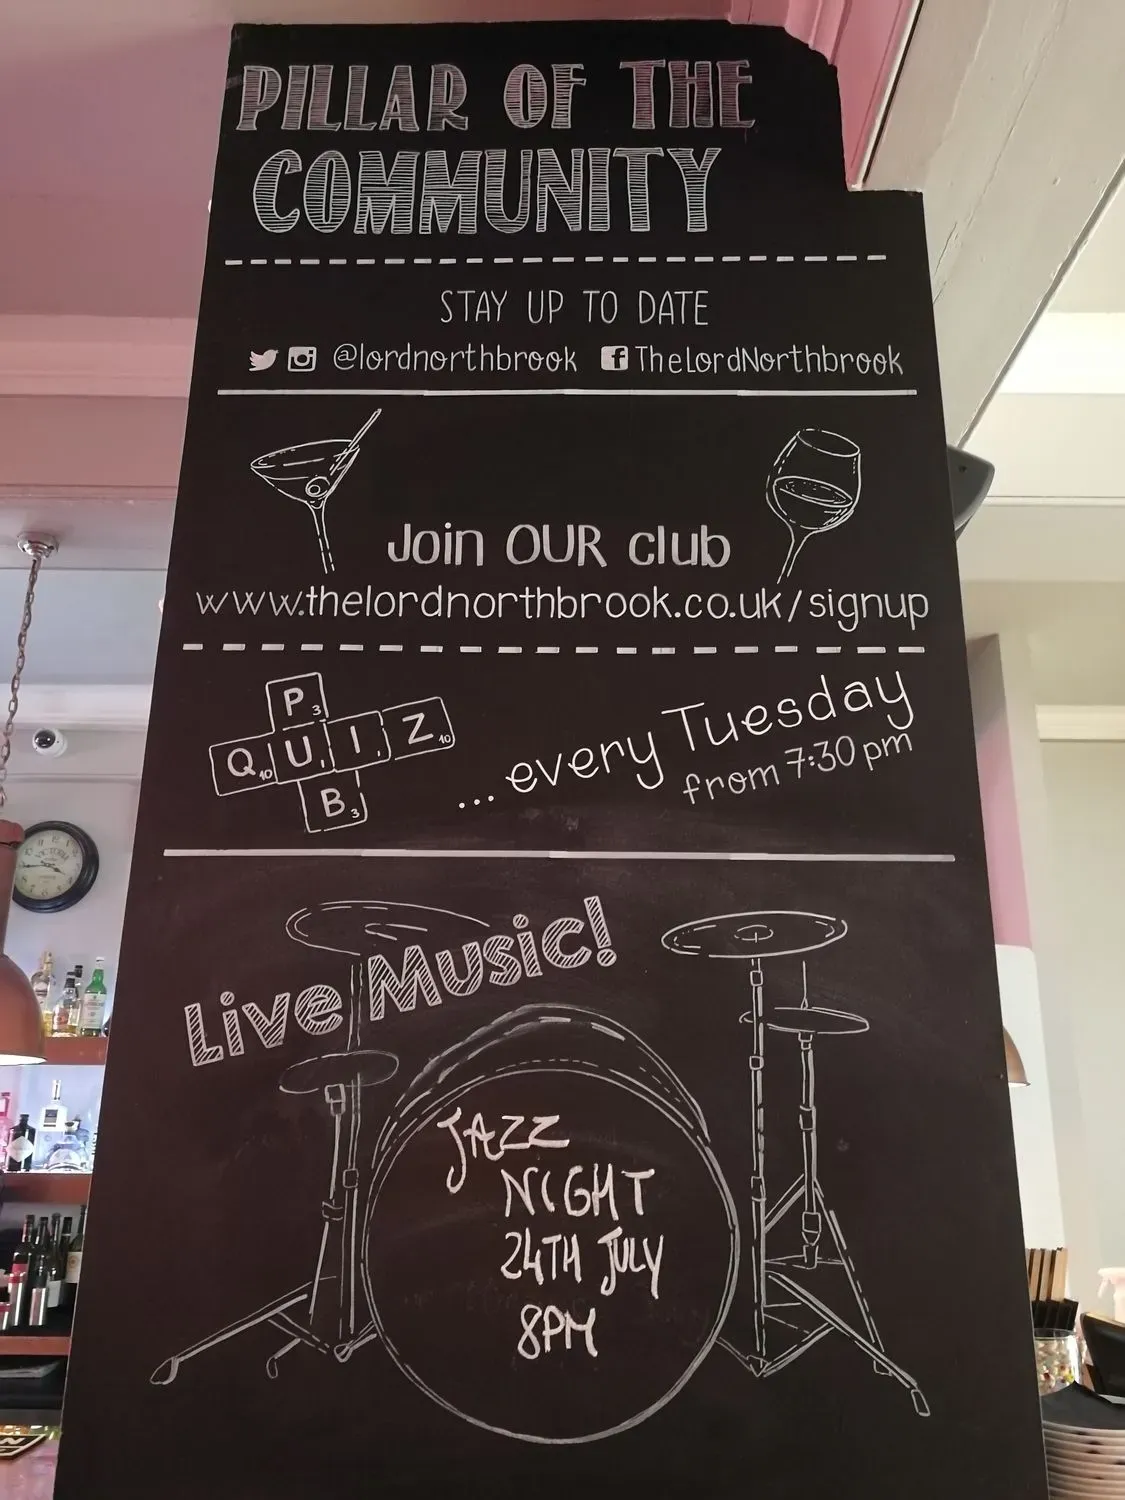 PILLAR OF THE
COMMUNITY
STAY UP TO DATE
@lordnorthbrook f TheLordNorthbrook
Join OUR club
www.thelordnorthbrook.co.uk/signup
P3
Q10 U1 I1 Z10
B3
...every Tuesday
from 7:30pm
Live Music!
JAZZ
NIGHT
24TH JULY
8PM
VICTORIA